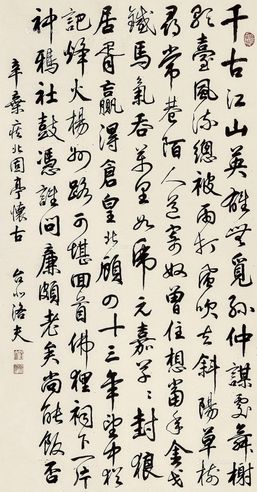 千古江山英雄無覓孫仲謀處舞榭
歌臺風流總被雨打風吹去斜陽草樹
尋常巷陌人道寄奴曾住想當年金戈
鐵馬氣吞萬里如虎元嘉草々封狼
居胥贏得倉皇北顧四十三年望中猶
記烽火揚州路可堪回首佛狸祠下一片
神鴉社鼓憑誰問廉頗老矣尚能飯否
辛棄疾北固亭懷古 台北洛夫